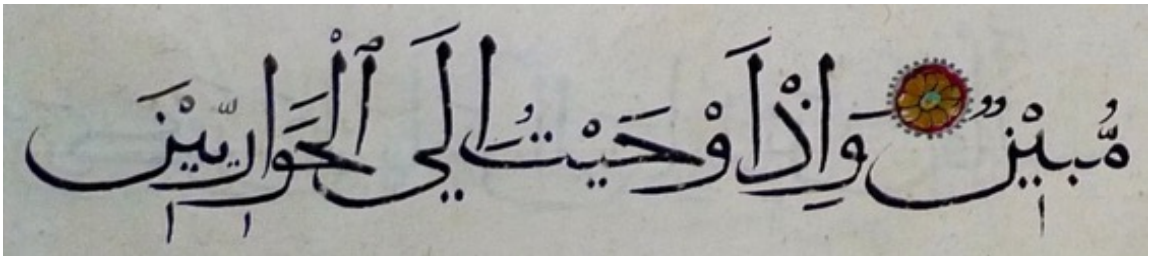 مُّبِيْنٌ وَاِذْ اَوْحَيْتُ اِلَى ٱلْحَوَارِيّٖيْنَ